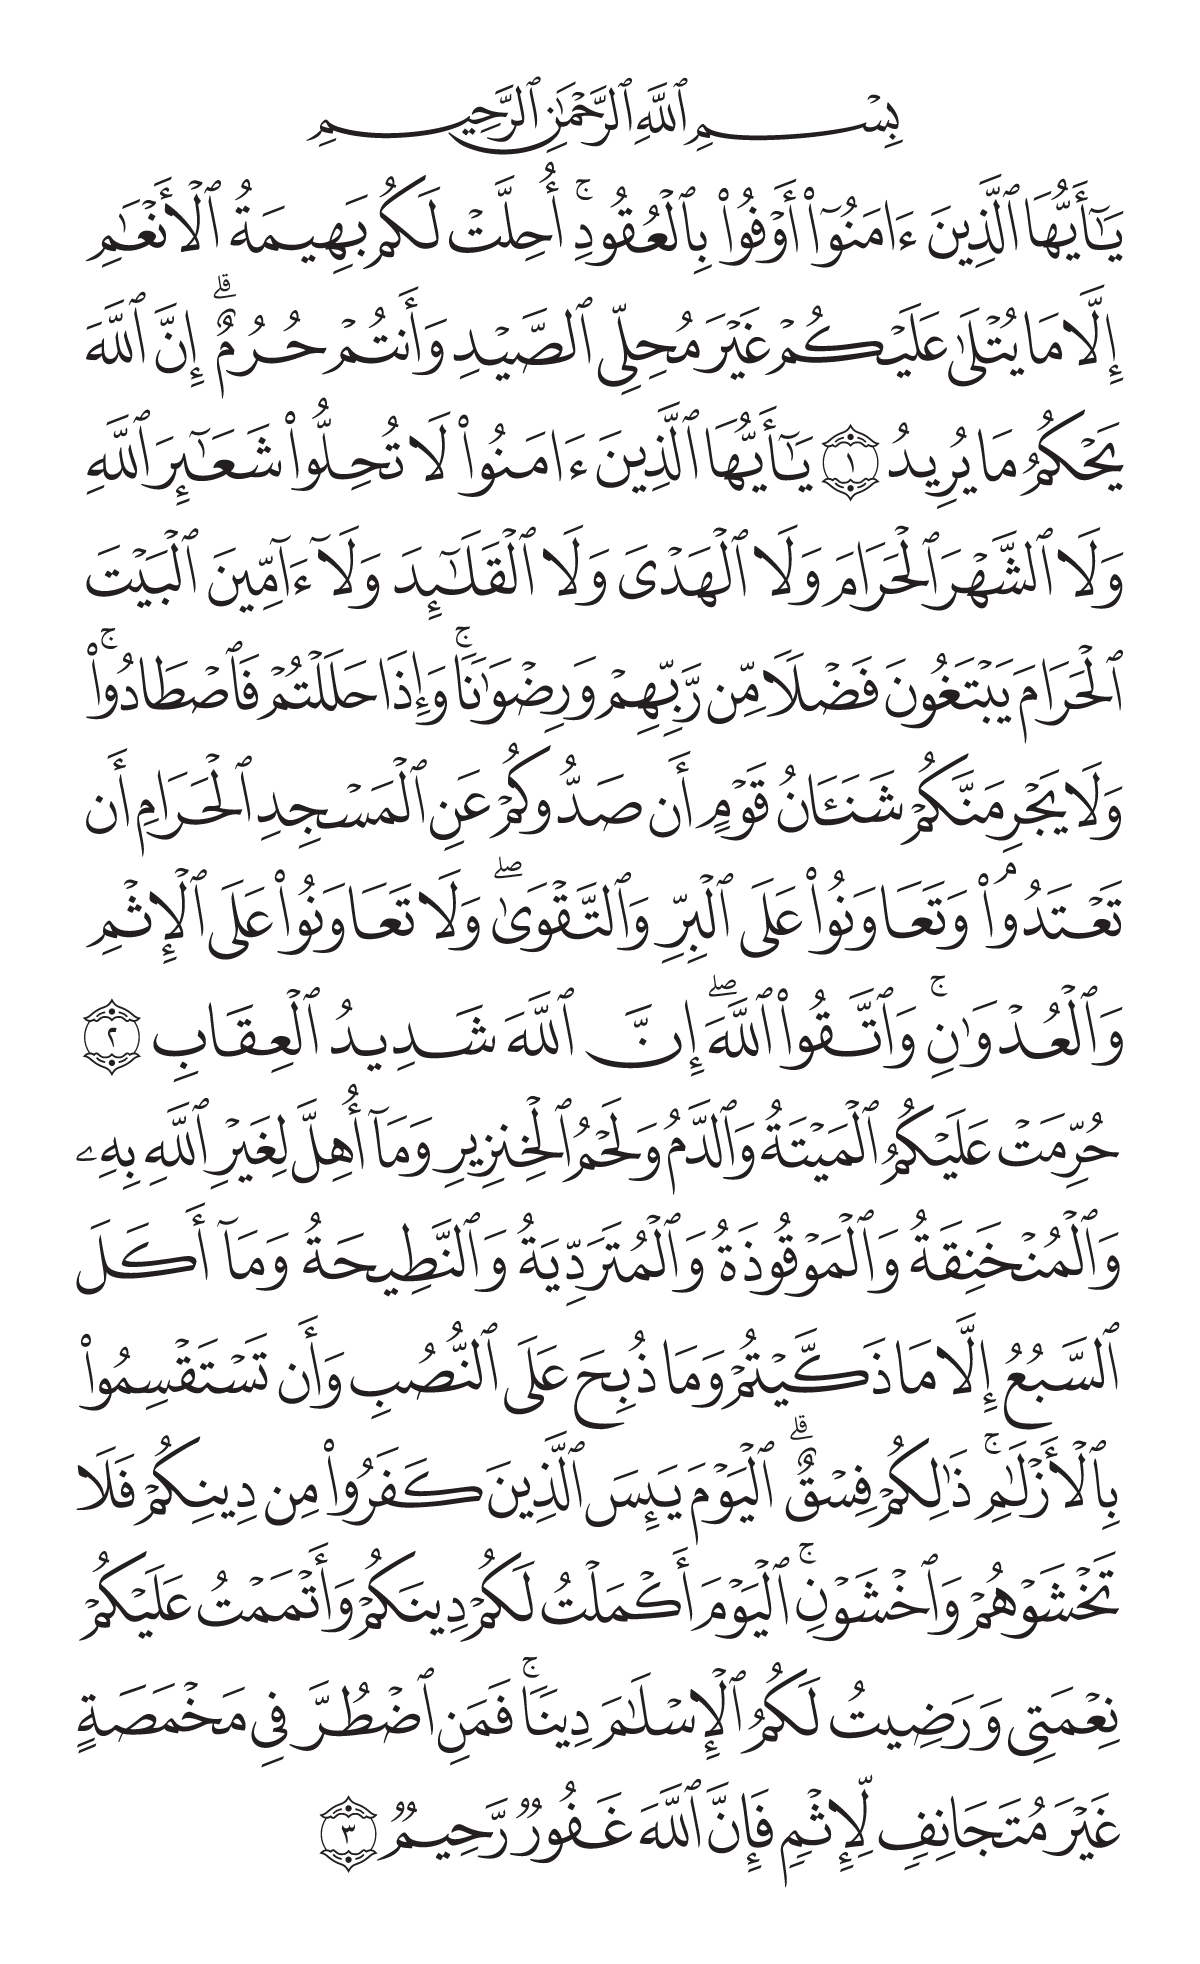 بِسْمِ ٱللَّهِ ٱلرَّحْمَٰنِ ٱلرَّحِيمِ
يَٰٓأَيُّهَا ٱلَّذِينَ ءَامَنُوٓا۟ أَوْفُوا۟ بِٱلْعُقُودِ ۚ أُحِلَّتْ لَكُم بَهِيمَةُ ٱلْأَنْعَٰمِ
إِلَّا مَا يُتْلَىٰ عَلَيْكُمْ غَيْرَ مُحِلِّى ٱلصَّيْدِ وَأَنتُمْ حُرُمٌ ۗ إِنَّ ٱللَّهَ
يَحْكُمُ مَا يُرِيدُ ١ يَٰٓأَيُّهَا ٱلَّذِينَ ءَامَنُوا۟ لَا تُحِلُّوا۟ شَعَٰٓئِرَ ٱللَّهِ
وَلَا ٱلشَّهْرَ ٱلْحَرَامَ وَلَا ٱلْهَدْىَ وَلَا ٱلْقَلَٰٓئِدَ وَلَآ ءَآمِّينَ ٱلْبَيْتَ
ٱلْحَرَامَ يَبْتَغُونَ فَضْلًا مِّن رَّبِّهِمْ وَرِضْوَٰنًا ۚ وَإِذَا حَلَلْتُمْ فَٱصْطَادُوا۟ ۚ
وَلَا يَجْرِمَنَّكُمْ شَنَـَٔانُ قَوْمٍ أَن صَدُّوكُمْ عَنِ ٱلْمَسْجِدِ ٱلْحَرَامِ أَن
تَعْتَدُوا۟ ۘ وَتَعَاوَنُوا۟ عَلَى ٱلْبِرِّ وَٱلتَّقْوَىٰ ۖ وَلَا تَعَاوَنُوا۟ عَلَى ٱلْإِثْمِ
وَٱلْعُدْوَٰنِ ۚ وَٱتَّقُوا۟ ٱللَّهَ ۖ إِنَّ ٱللَّهَ شَدِيدُ ٱلْعِقَابِ ٢
حُرِّمَتْ عَلَيْكُمُ ٱلْمَيْتَةُ وَٱلدَّمُ وَلَحْمُ ٱلْخِنزِيرِ وَمَآ أُهِلَّ لِغَيْرِ ٱللَّهِ بِهِۦ
وَٱلْمُنْخَنِقَةُ وَٱلْمَوْقُوذَةُ وَٱلْمُتَرَدِّيَةُ وَٱلنَّطِيحَةُ وَمَآ أَكَلَ
ٱلسَّبُعُ إِلَّا مَا ذَكَّيْتُمْ وَمَا ذُبِحَ عَلَى ٱلنُّصُبِ وَأَن تَسْتَقْسِمُوا۟
بِٱلْأَزْلَٰمِ ۚ ذَٰلِكُمْ فِسْقٌ ۗ ٱلْيَوْمَ يَئِسَ ٱلَّذِينَ كَفَرُوا۟ مِن دِينِكُمْ فَلَا
تَخْشَوْهُمْ وَٱخْشَوْنِ ۚ ٱلْيَوْمَ أَكْمَلْتُ لَكُمْ دِينَكُمْ وَأَتْمَمْتُ عَلَيْكُمْ
نِعْمَتِى وَرَضِيتُ لَكُمُ ٱلْإِسْلَٰمَ دِينًا ۚ فَمَنِ ٱضْطُرَّ فِى مَخْمَصَةٍ
غَيْرَ مُتَجَانِفٍ لِّإِثْمٍ فَإِنَّ ٱللَّهَ غَفُورٌ رَّحِيمٌ ٣